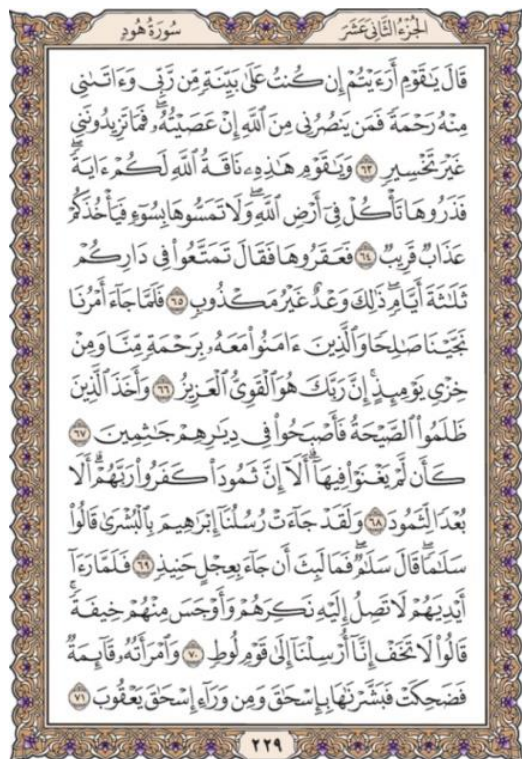 الجُزْءُ الثَّانِي عَشَرَ سُورَةُ هُودٍ
قَالَ يَٰقَوْمِ أَرَءَيْتُمْ إِن كُنتُ عَلَىٰ بَيِّنَةٍ مِّن رَّبِّي وَءَاتَىٰنِي
مِنْهُ رَحْمَةً فَمَن يَنصُرُنِي مِنَ ٱللَّهِ إِنْ عَصَيْتُهُۥۖ فَمَا تَزِيدُونَنِي
غَيْرَ تَخْسِيرٍ ٦٣ وَيَٰقَوْمِ هَٰذِهِۦ نَاقَةُ ٱللَّهِ لَكُمْ ءَايَةًۖ
فَذَرُوهَا تَأْكُلْ فِىٓ أَرْضِ ٱللَّهِۖ وَلَا تَمَسُّوهَا بِسُوٓءٍ فَيَأْخُذَكُمْ
عَذَابٌ قَرِيبٌ ٦٤ فَعَقَرُوهَا فَقَالَ تَمَتَّعُوا۟ فِى دَارِكُمْ
ثَلَٰثَةَ أَيَّامٍۖ ذَٰلِكَ وَعْدٌ غَيْرُ مَكْذُوبٍ ٦٥ فَلَمَّا جَآءَ أَمْرُنَا
نَجَّيْنَا صَٰلِحًا وَٱلَّذِينَ ءَامَنُوا۟ مَعَهُۥ بِرَحْمَةٍ مِّنَّا وَمِنْ
خِزْىِ يَوْمِئِذٍۗ إِنَّ رَبَّكَ هُوَ ٱلْقَوِىُّ ٱلْعَزِيزُ ٦٦ وَأَخَذَ ٱلَّذِينَ
ظَلَمُوا۟ ٱلصَّيْحَةُ فَأَصْبَحُوا۟ فِى دِيَٰرِهِمْ جَٰثِمِينَ ٦٧
كَأَن لَّمْ يَغْنَوْا۟ فِيهَآۗ أَلَآ إِنَّ ثَمُودَا۟ كَفَرُوا۟ رَبَّهُمْۗ أَلَا
بُعْدًا لِّثَمُودَ ٦٨ وَلَقَدْ جَآءَتْ رُسُلُنَآ إِبْرَٰهِيمَ بِٱلْبُشْرَىٰ قَالُوا۟
سَلَٰمًاۖ قَالَ سَلَٰمٌۖ فَمَا لَبِثَ أَن جَآءَ بِعِجْلٍ حَنِيذٍ ٦٩ فَلَمَّا رَءَآ
أَيْدِيَهُمْ لَا تَصِلُ إِلَيْهِ نَكِرَهُمْ وَأَوْجَسَ مِنْهُمْ خِيفَةًۚ
قَالُوا۟ لَا تَخَفْ إِنَّآ أُرْسِلْنَآ إِلَىٰ قَوْمِ لُوطٍ ٧٠ وَٱمْرَأَتُهُۥ قَآئِمَةٌ
فَضَحِكَتْ فَبَشَّرْنَٰهَا بِإِسْحَٰقَ وَمِن وَرَآءِ إِسْحَٰقَ يَعْقُوبَ ٧١
٢٢٩